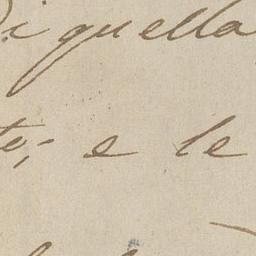 di quella
te; e le